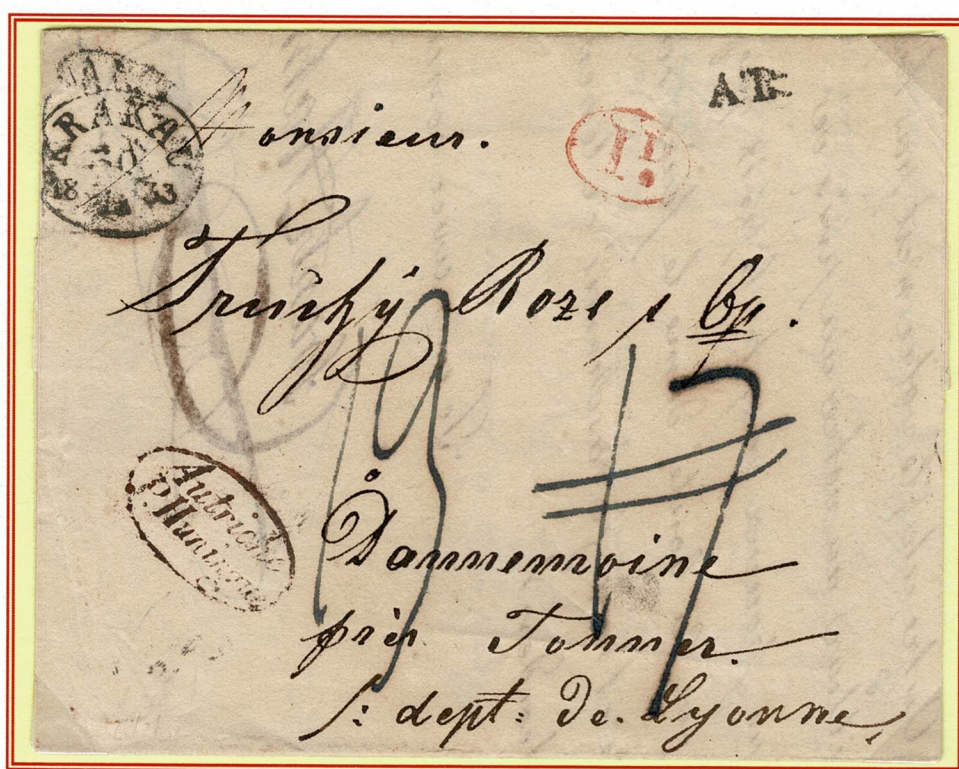 KRAKAU
Monsieur.
A.T.
Truchÿ Roze
Autriche
P. Huningue
Dannemoine
près Tonner.
/: dept: De. Lyonne,